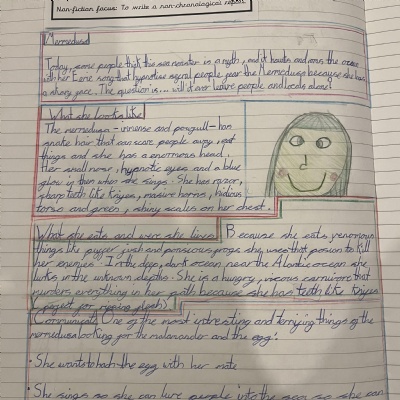 Non-fiction focus: To write a non-chronological report
Mermedusa
Today, some people think this sea monster is a myth, and it haunts and owns the ocean
with her Eerie song that hypnotise people year the Mermedusa because she has
a sharp face. The question is... will it ever leave people and locals alone?
What she looks like
The mermedusa - immense and - has
snake hair that can scare people away, eat
things and she has a enormous head,
Her small nose, hypnotic eyes and a blue
glow in them when she sings. She has razor,
sharp teeth like knives, massive horns, hidious
torso and green, shiny scales on her chest.
What she eats and were she lives Because she eats venomous
things like puffer fish and poisonous frogs she uses that posion to kill
her enemies. In the deep, dark ocean near the ocean she
lurks in the unknown depths. She is a hungry, vicous carnivore that
murders everything in her path because she has teeth like knives
(perfect for ripping flesh)
Communicate One of the most intresting and terrifying things of the
mermedusa looking for the malamander and the egg:
• She wants to hach the egg with her mate
• She sings so she can lure people into the sea so she can